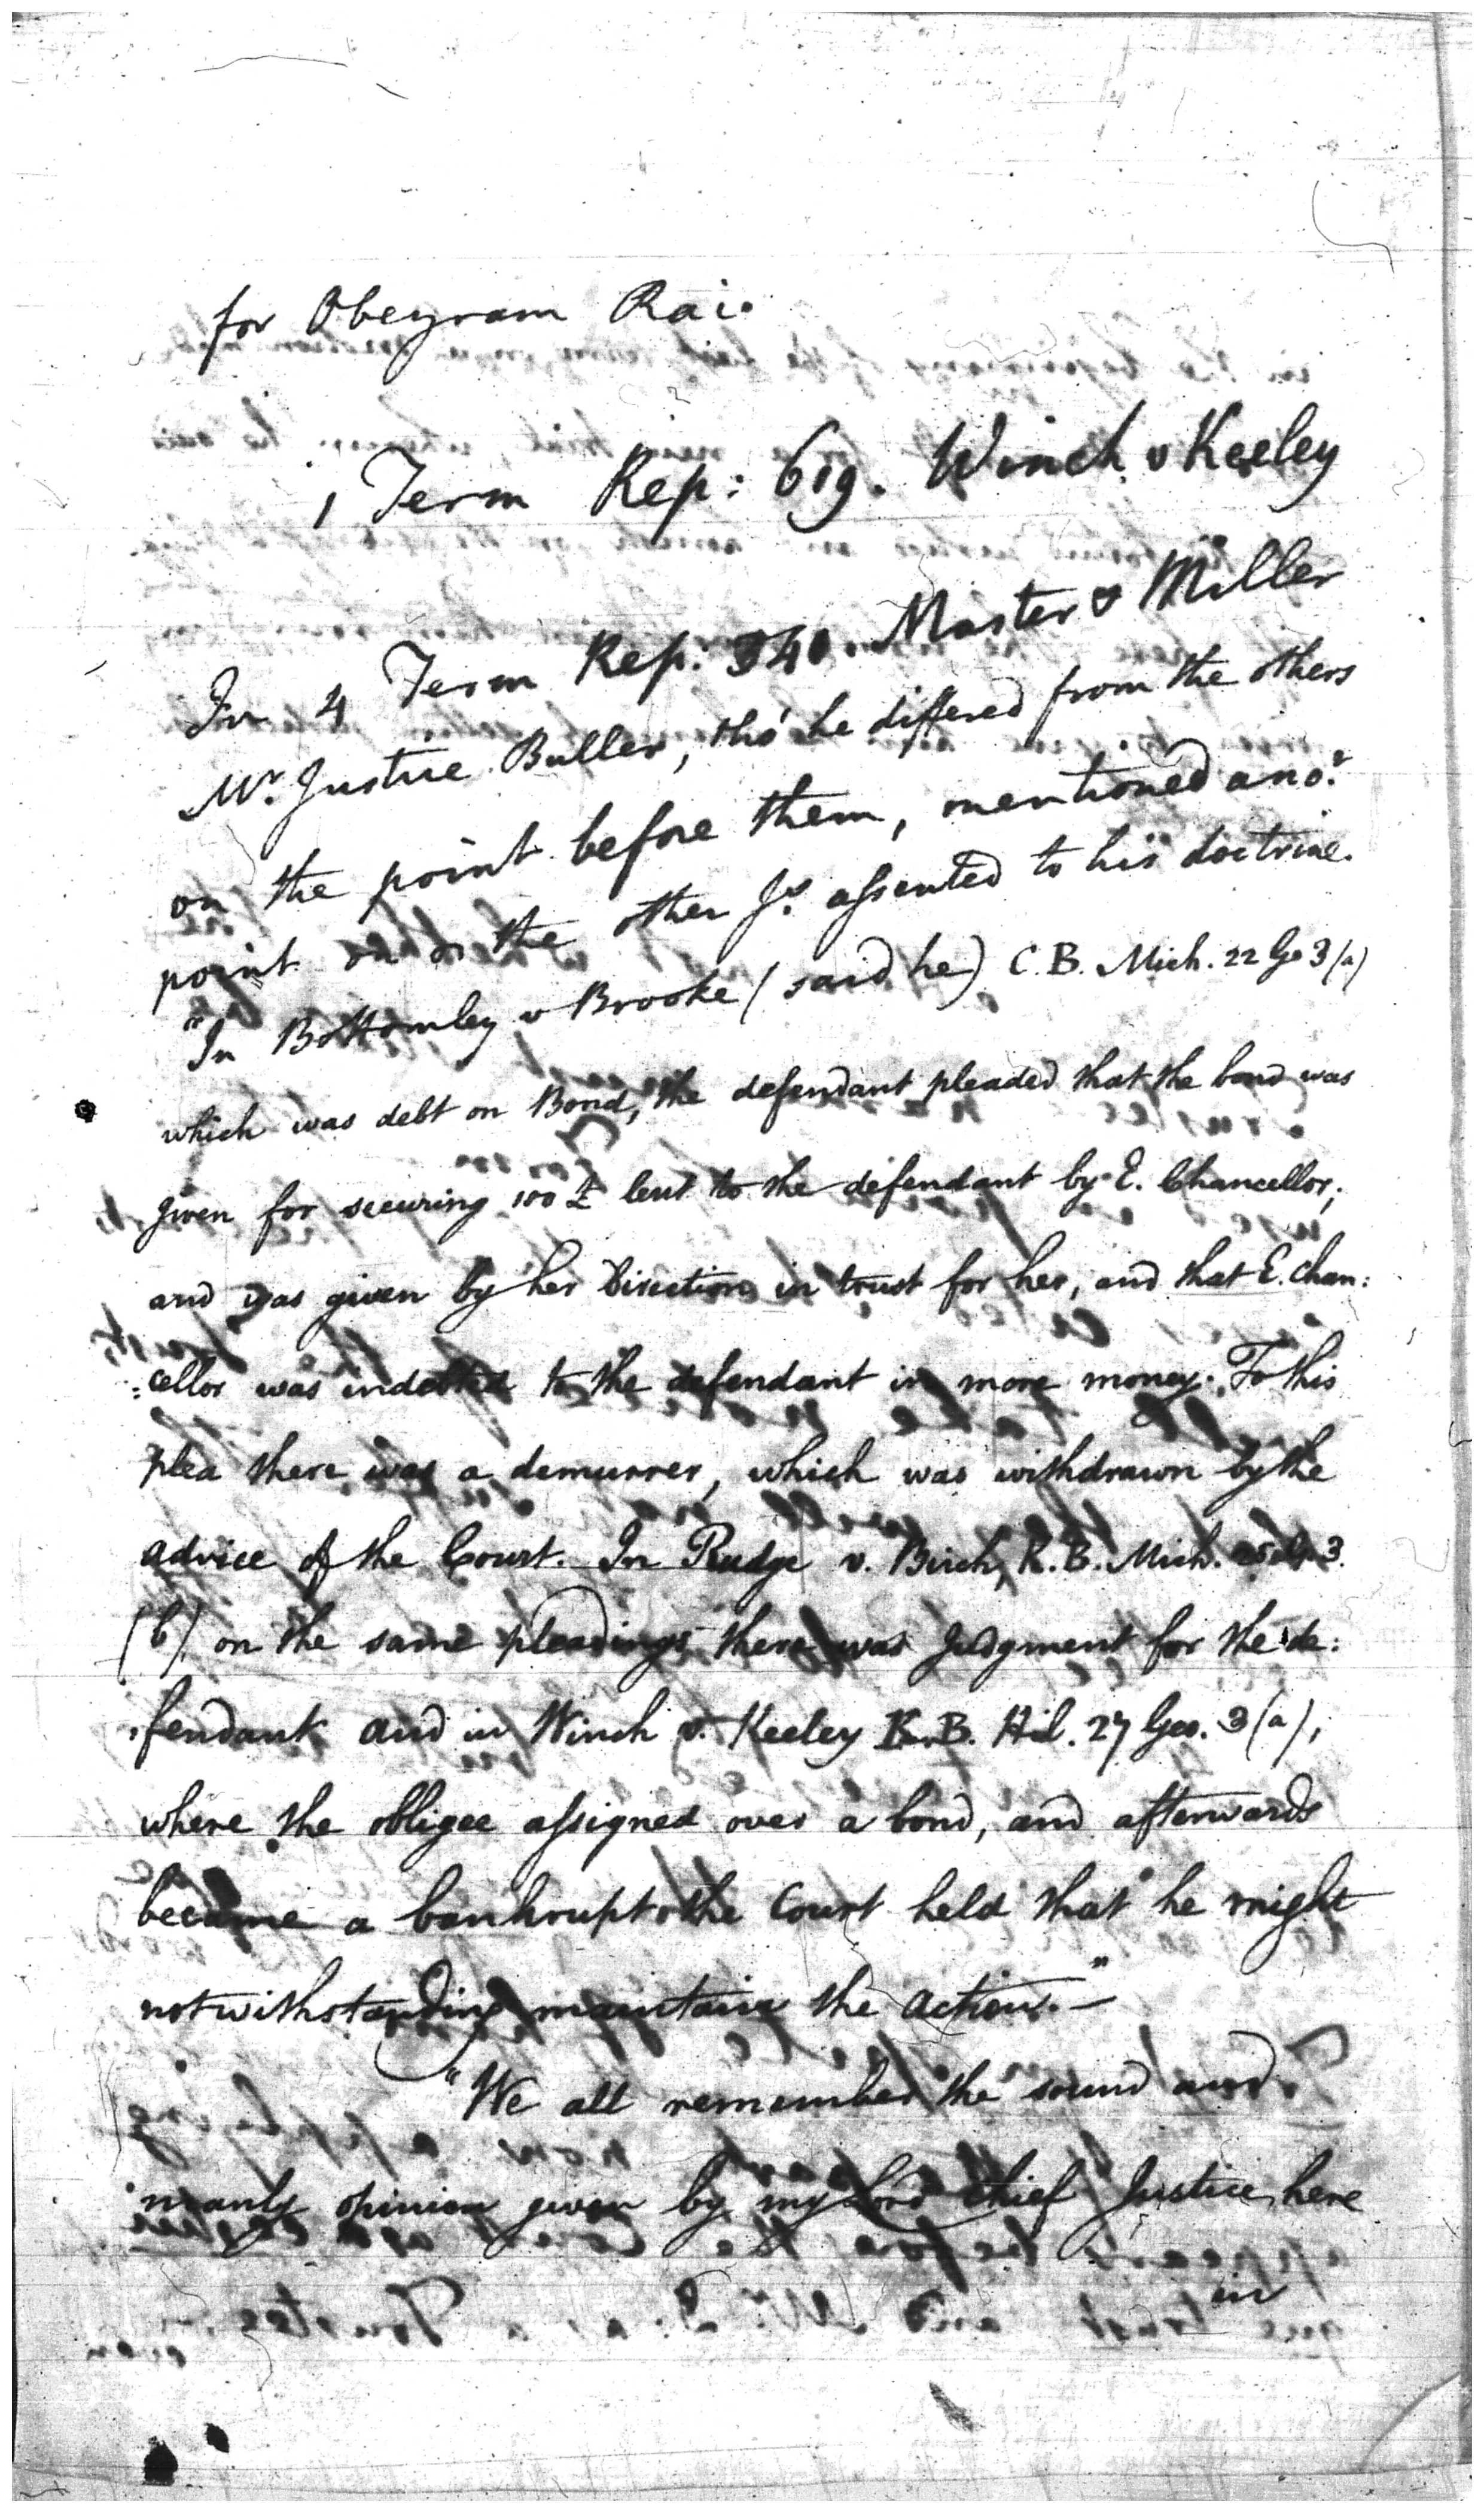 for Obeyram Rai.
1 Term Rep: 619. Winch v Keeley
In 4 Term Rep: 340. Master v Miller
Mr. Justice Buller, tho' he differed from the others
on the point before them, mentioned anor.
point on the other Js. assented to his doctrine.
"In Bottomley v Brooke (said he) C.B. Mich. 22 Ge 3 (a)
which was debt on Bond, the defendant pleaded that the bond was
given for securing 100 £ lent to the defendant by E. Chancellor,
and was given by her Direction in trust for her, and that E. Chan:
:cellor was indebted to the defendant in more money. To this
plea there was a demurrer, which was withdrawn by the
advice of the Court. In Rudge v. Birch, K.B. Mich. 3.
(b) on the same pleadings there was Judgment for the de:
:fendant and in Winch v. Keeley K.B. Hil. 27 Geo. 3 (a),
where the obligee assigned over a bond, and afterwards
became a bankrupt the Court held that he might
notwithstanding maintain the action."—
"We all remember the sound and
manly opinion given by my Lord Chief Justice here
in